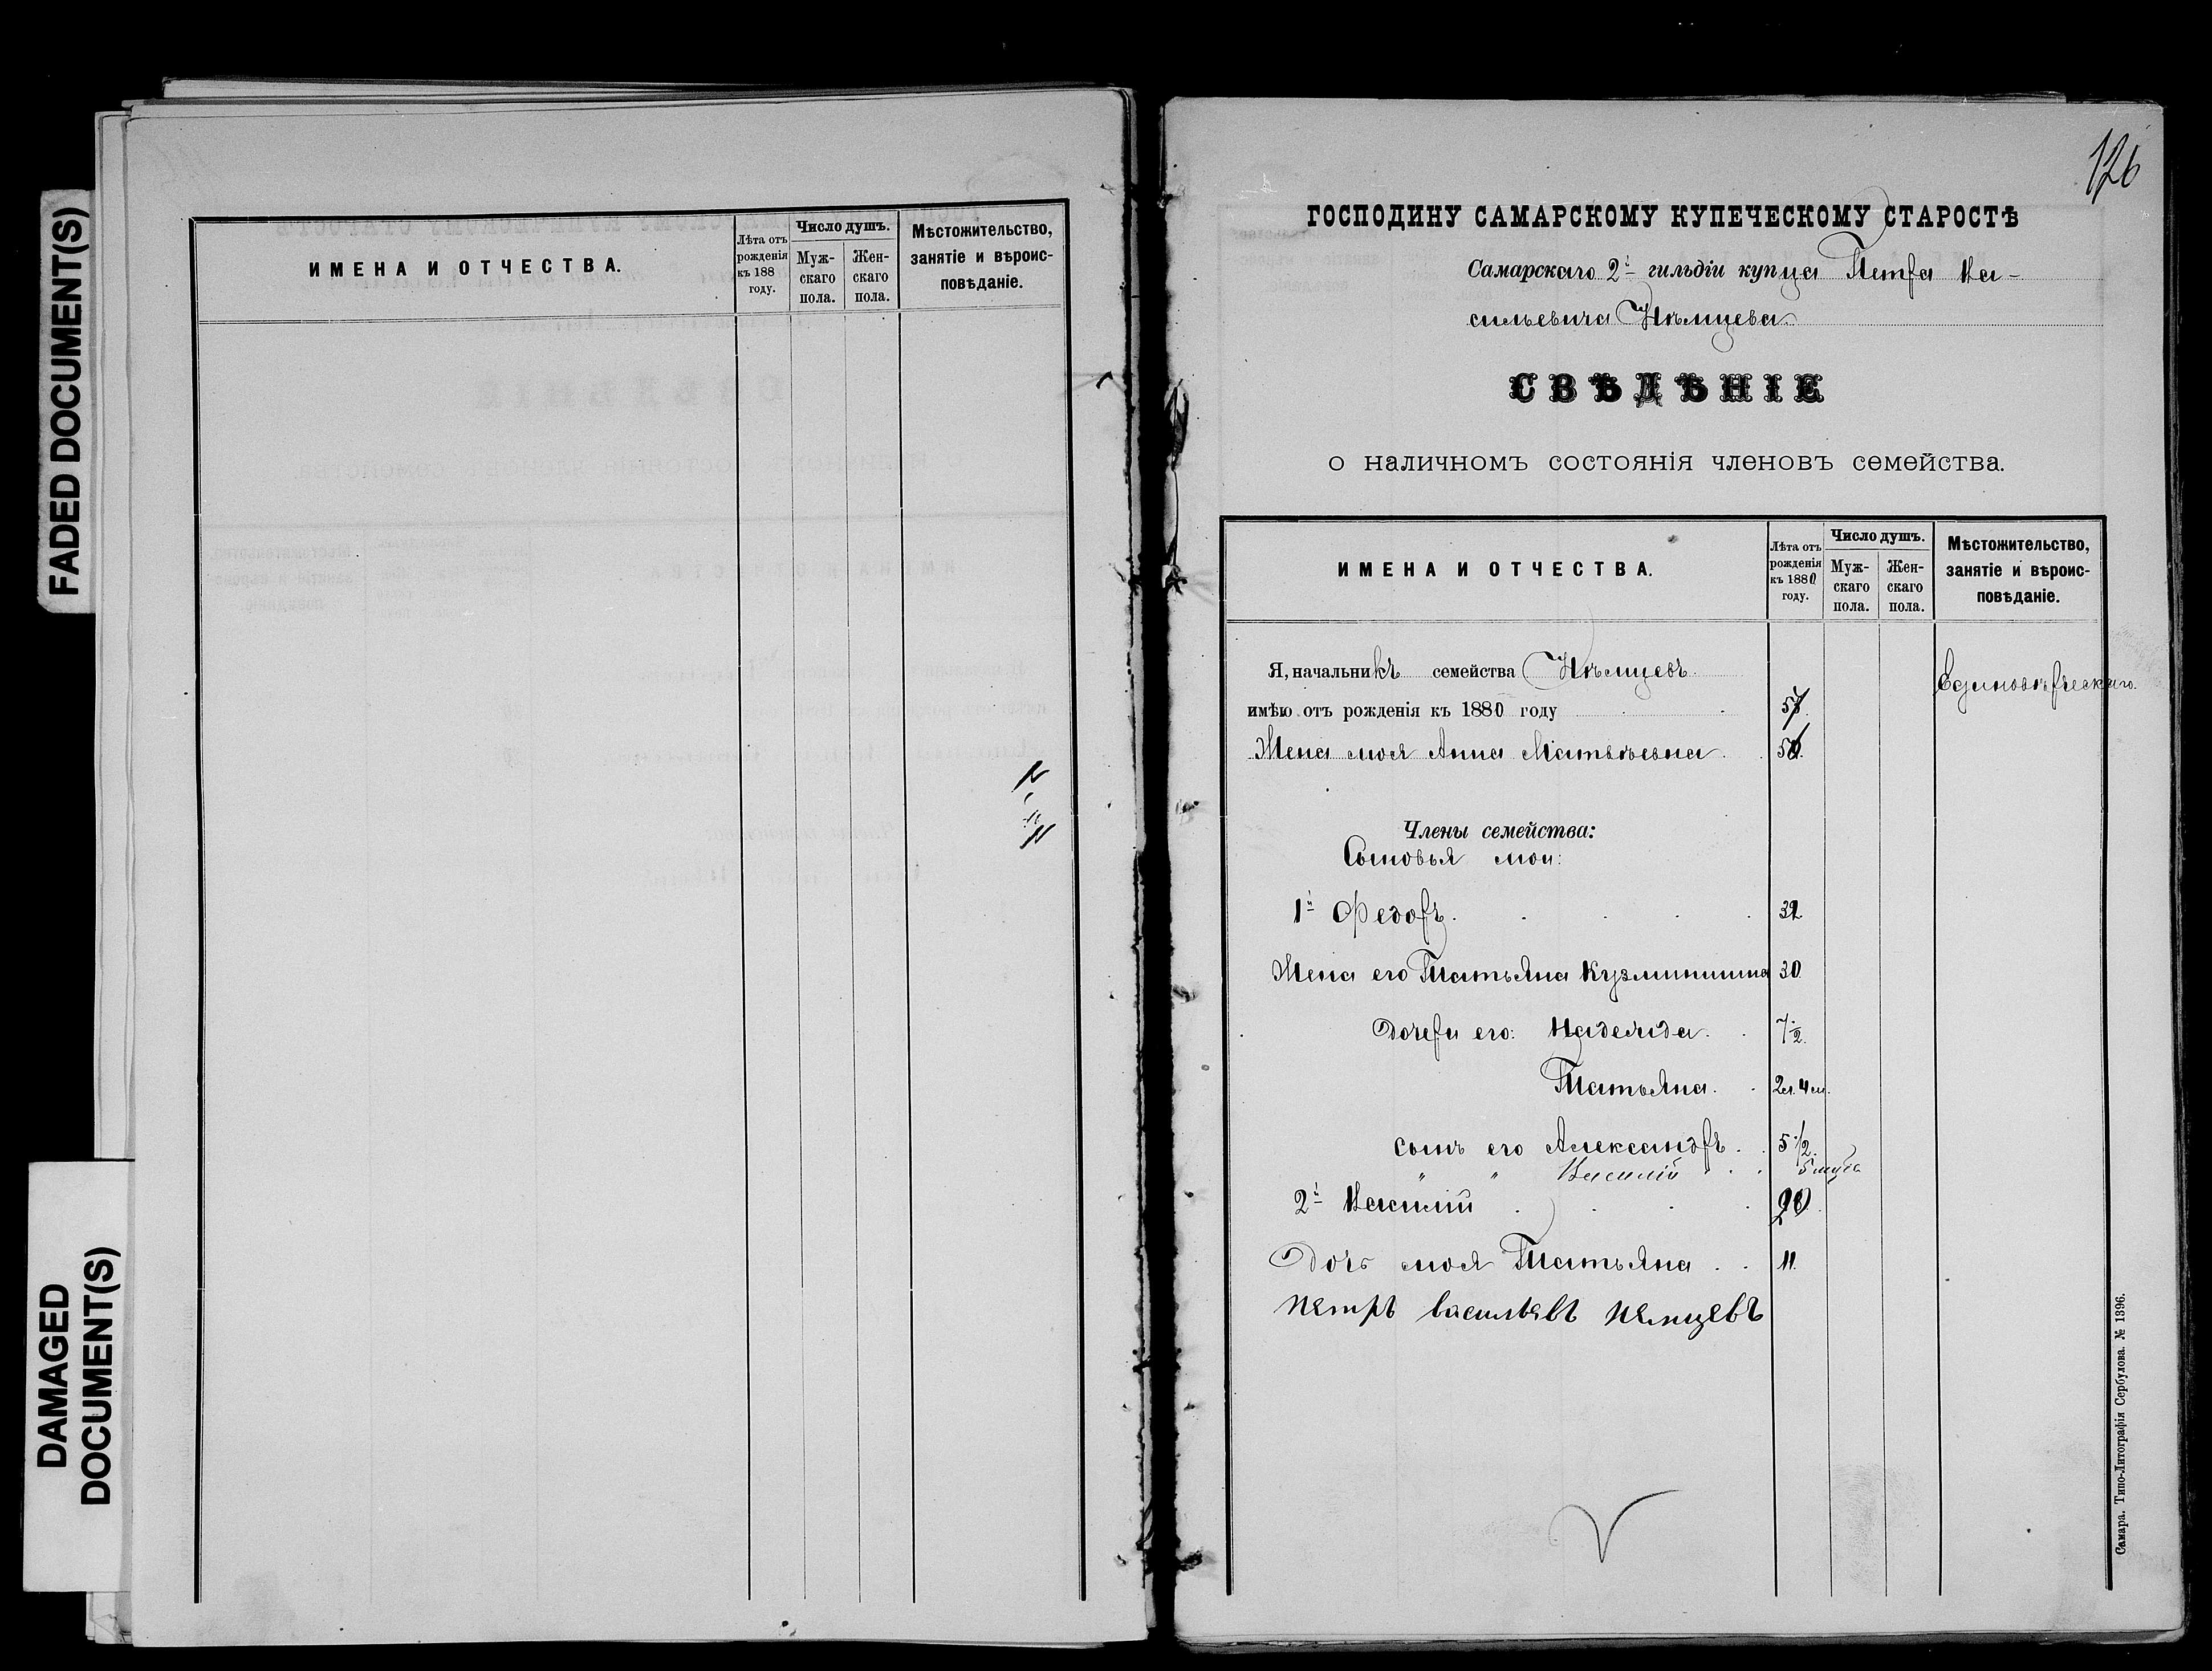 FADED DOCUMENT(S)
DAMAGED
DOCUMENT(S)
ИМЕНА И ОТЧЕСТВА.
Лѣта отъ
рожденія
къ 188
году.
Число душъ.
Муж-
скаго
пола.
Жен-
скаго
пола.
Мѣстожительство,
занятіе и вѣроис-
повѣданіе.
126
ГОСПОДИНУ САМАРСКОМУ КУПЕЧЕСКОМУ СТАРОСТѢ
Самарскаго 2й гильдіи купца Петра Ва-
сильевича Нѣмцева.
СВѢДѢНІЕ
О НАЛИЧНОМЪ СОСТОЯНІЯ ЧЛЕНОВЪ СЕМЕЙСТВА.
ИМЕНА И ОТЧЕСТВА.
Лѣта отъ
рожденія
къ 1880
году.
Число душъ.
Муж-
скаго
пола.
Жен-
скаго
пола.
Мѣстожительство,
занятіе и вѣроис-
повѣданіе.
Я, начальникъ семейства Нѣмцевъ
Единовѣрческаго.
имѣю отъ рожденія къ 1880 году
Жена моя Анна Матвѣевна.
Члены семейства:
Сыновья мои:
1й Федоръ.
Жена его Татьяна Кузминишна 30
Дочери его: Надежда. 7 1/2.
Татьяна. 2л. 4м.
сынъ его Александръ. 5 1/2.
" " Василій
2й Василій
Дочь моя Татьяна 11.
Петръ васильевъ немцевъ
Самара. Типо-Литографія Сербулова. № 1396.